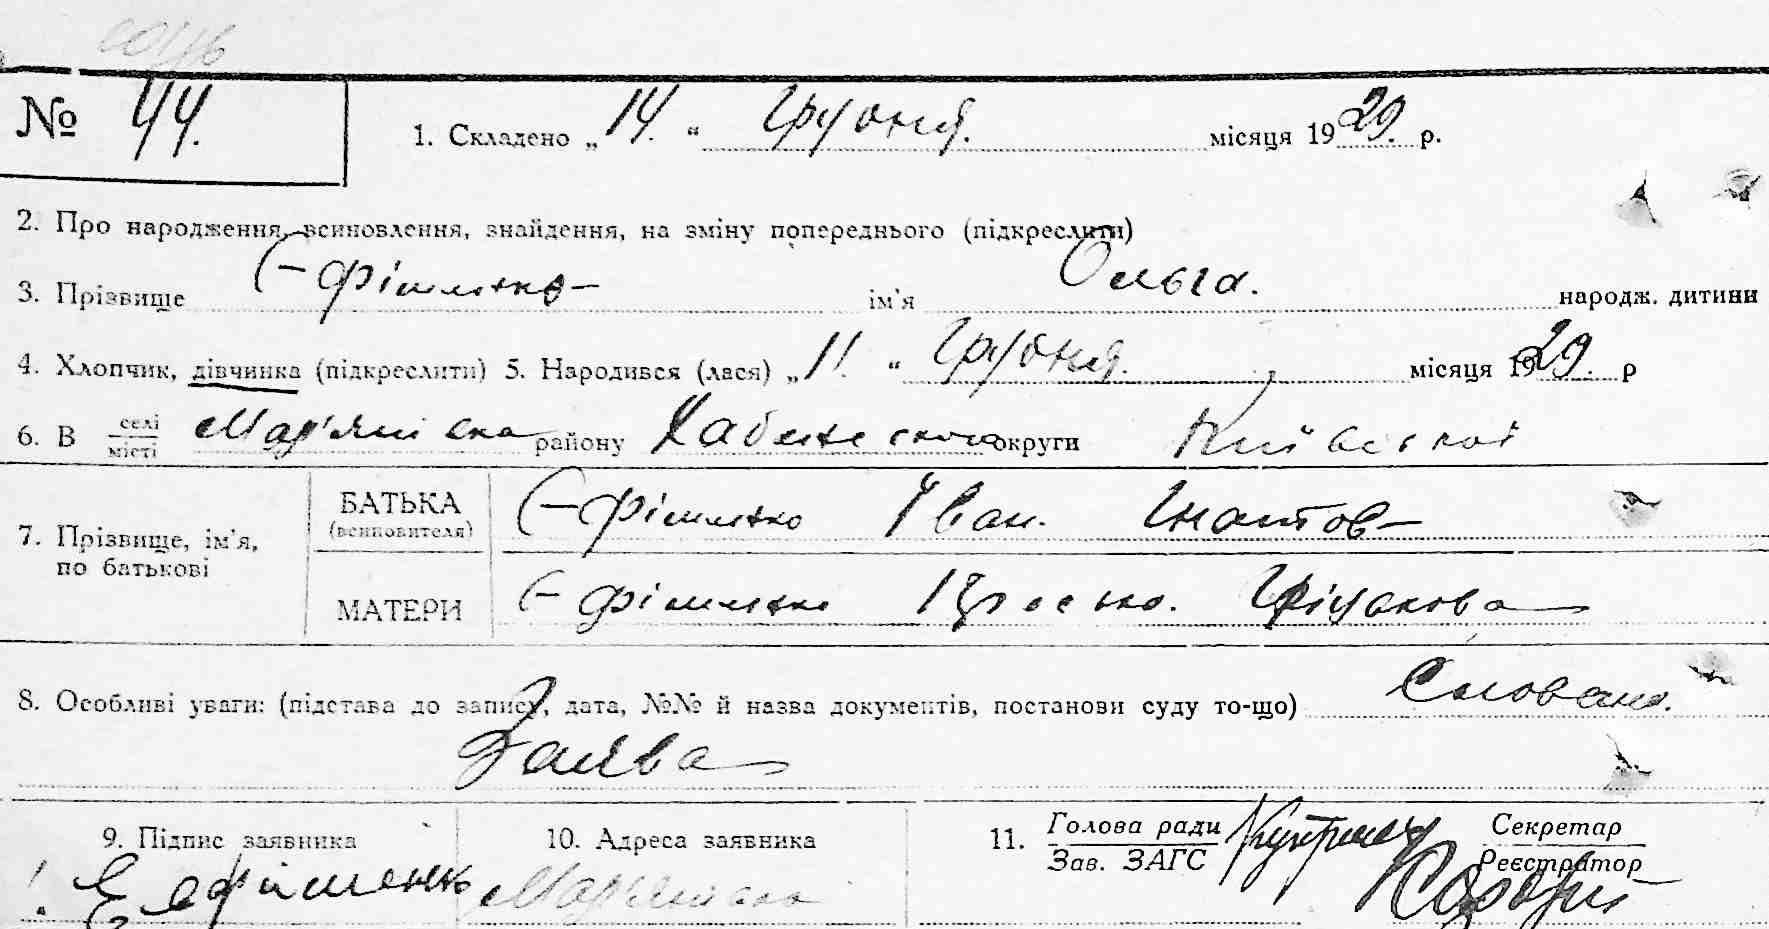 № 44. 1. Складено „14." Грудня. місяця 1929. р.
2. Про народження, всиновлення, знайдення, на зміну попереднього (підкреслити)
3. Прізвище Єфіменко ім'я Ольга. народж. дитини
4. Хлопчик, дівчинка (підкреслити) 5. Народився (лася) „11." Грудня. місяця 1929. р
6. В селі місті Мар'янівка району Хабенського округи Київської
7. Прізвище, ім'я, по батькові
БАТЬКА (всиновителя) Єфіменко Іван. Гнатов
МАТЕРИ Єфіменко
8. Особливі уваги: (підстава до запису, дата, №№ й назва документів, постанови суду то-що) Словесна.
Заява
9. Підпис заявника 10. Адреса заявника 11. Голова ради Зав. ЗАГС Секретар Реєстратор
Єфіменко Мар'янівка